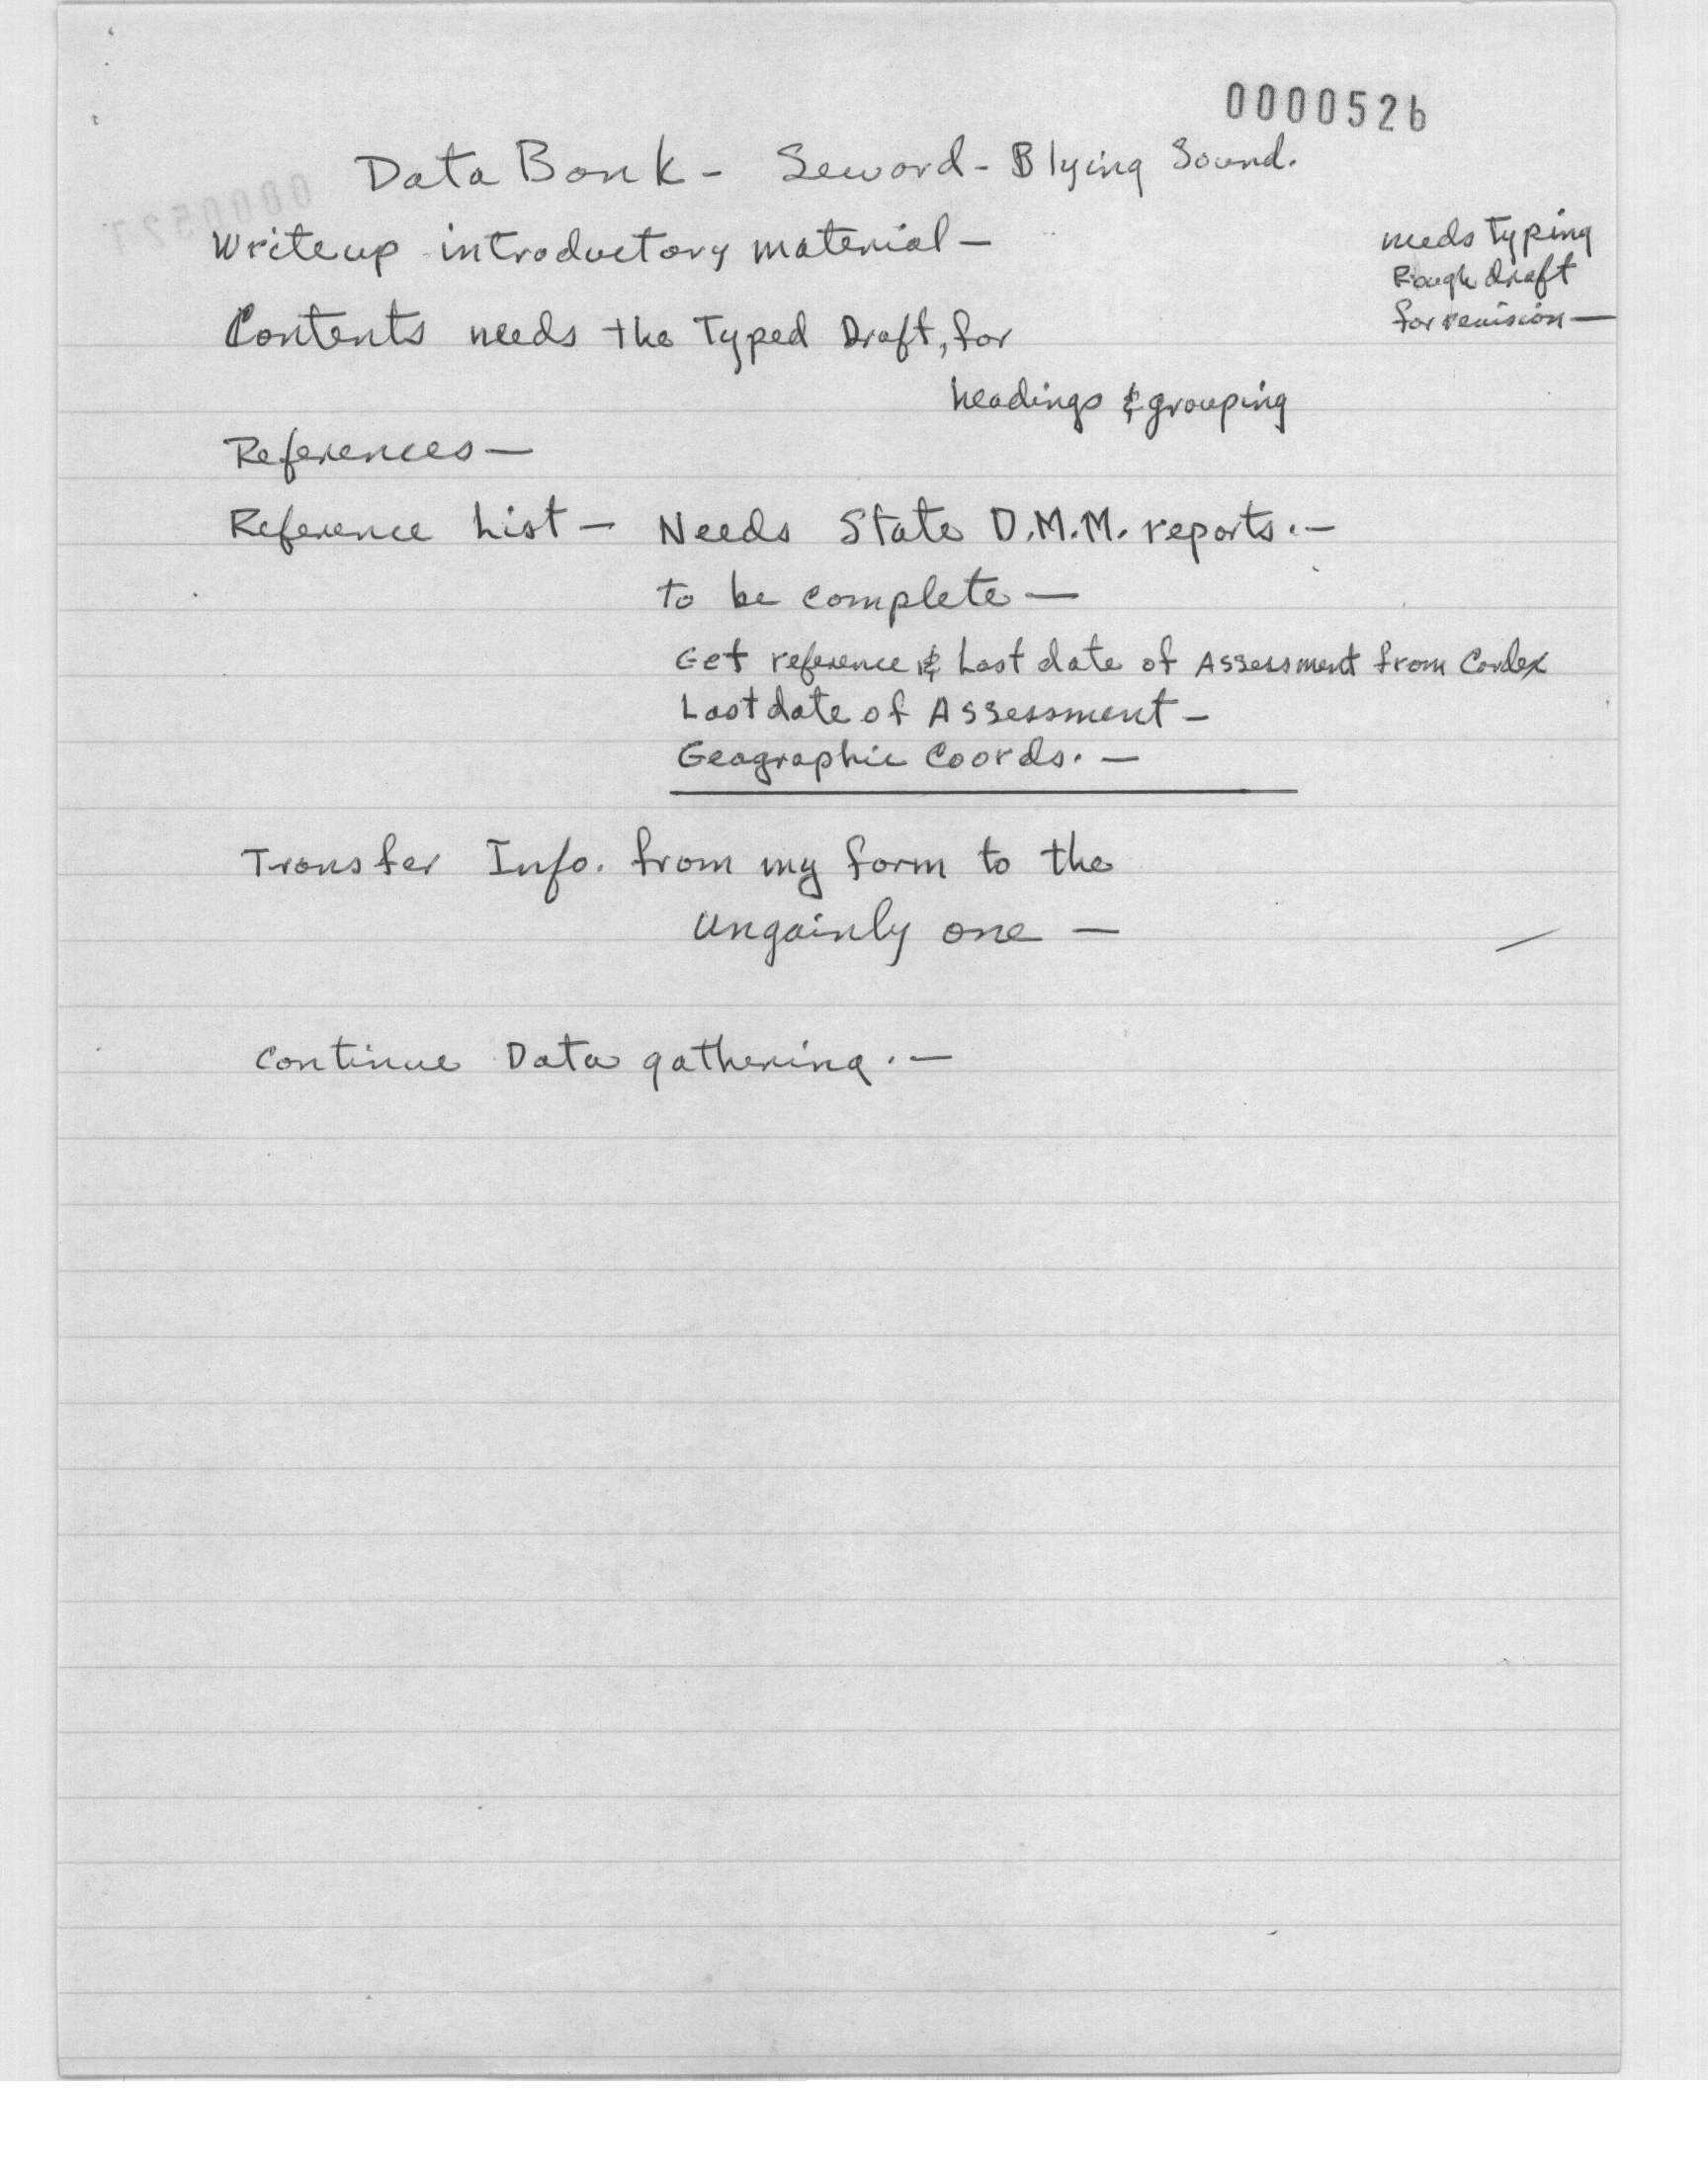 0000526
Data Bank - Seward - Blying Sound.
Write up introductory material —
needs typing
Rough draft
for revision —
Contents needs the Typed Draft, for
headings & grouping
References —
Reference List — Needs State D.M.M. reports. —
to be complete —
Get reference & Last date of Assessment from Cardex
Last date of Assessment —
Geographic Coords. —
Transfer Info. from my form to the
Ungainly one —
Continue Data gathering. —